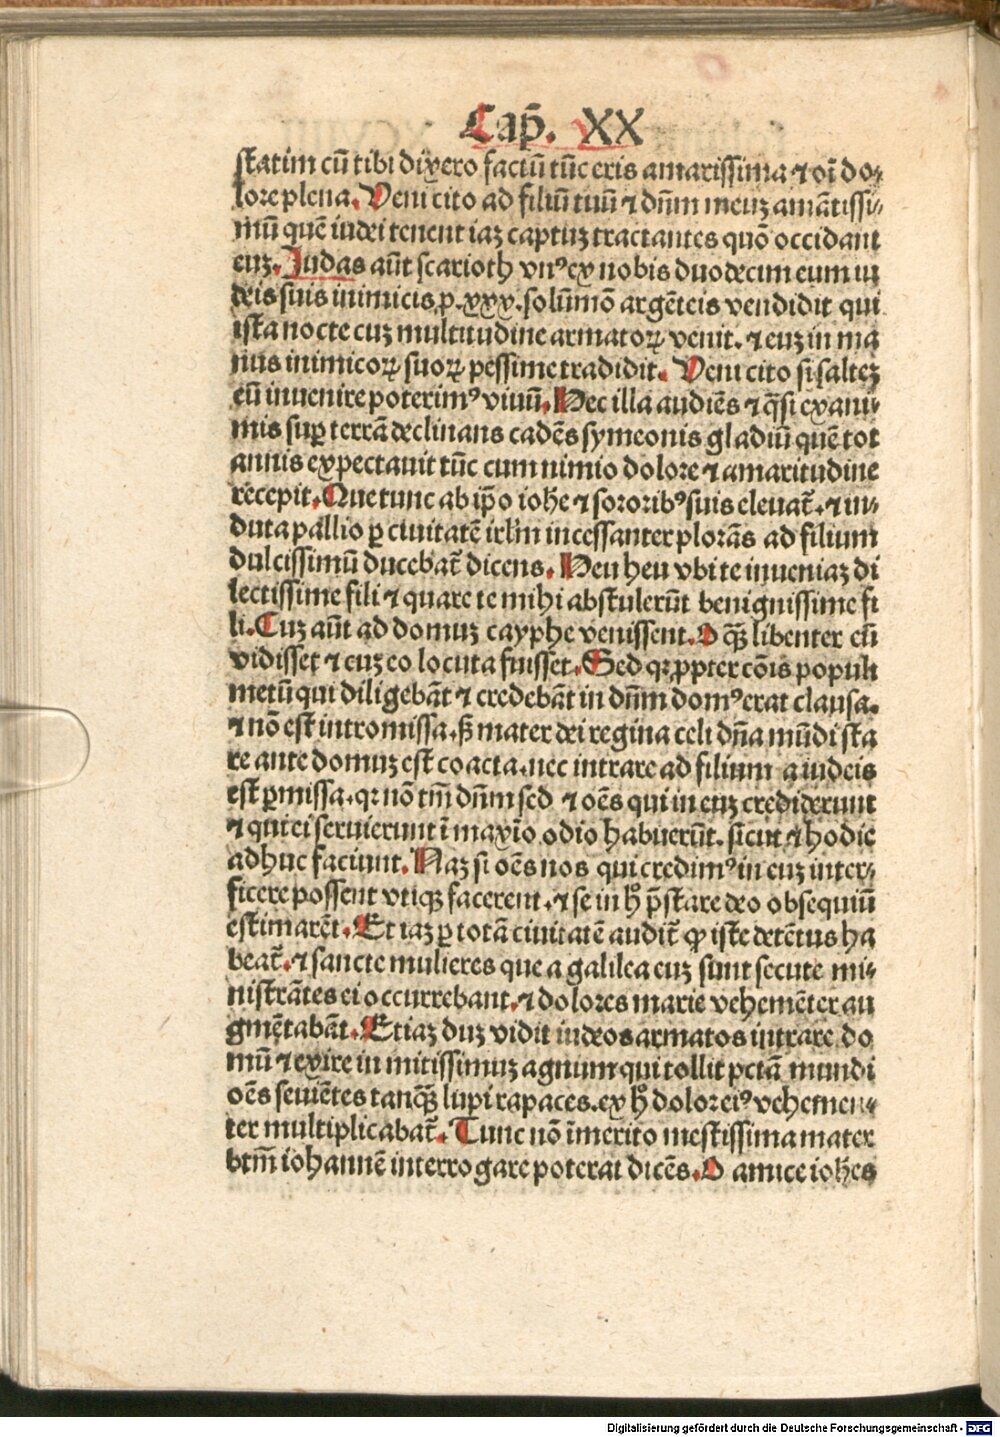 Cap̄. XX
statim cū tibi dixero faciū tūc eris amarissima ⁊ oī do⸗
lore plena. Veni cito ad filiū tuū ⁊ dn̄m meuꝫ amātissi⸗
mū quē iudei tenent iaꝫ captuꝫ tractantes quō occidant
euꝫ. Judas aūt scarioth vnꝰ ex nobis duodecim eum iu
deis suis inimicis ꝓ .xxx. solūmō argēteis vendidit qui
ista nocte cuꝫ multitudine armatoꝝ venit. ⁊ euꝫ in ma
nus inimicoꝝ suoꝝ pessime tradidit. Veni cito si salteꝫ
eū inuenire poterimꝰ viuū. Hec illa audiēs ⁊ q̄si exani⸗
mis suꝑ terrā declinans cadēs symeonis gladiū quē tot
annis expectauit tūc cum nimio dolore ⁊ amaritudine
recepit. Que tunc ab ip̄o iohe ⁊ sororibꝰ suis eleuat̄. ⁊ in⸗
duta pallio ꝑ ciuitatē irlm̄ incessanter plorās ad filium
dulcissimū ducebat̄ dicens. Heu heu vbi te inueniaꝫ di
lectissime fili ⁊ quare te mihi abstulerūt benignissime fi
li. Cuꝫ aūt ad domuꝫ cayphe venissent. O qꝫ̄ libenter eū
vidisset ⁊ cuꝫ eo locuta fuisset. Sed qꝛ ꝓpter cōis populi
metū qui diligebāt ⁊ credebāt in dn̄m domꝰ erat clausa.
⁊ nō est intromissa. sꝫ mater dei regina celi dn̄a mūdi sta
re ante domuꝫ est coacta. nec intrare ad filium a iudeis
est ꝑmissa. qꝛ nō tm̄ dn̄m sed ⁊ oēs qui in euꝫ crediderunt
⁊ qui ei seruierunt ī maxīo odio habuerūt. sicut ⁊ hodie
adhuc faciunt. Naꝫ si oēs nos qui credimꝰ in euꝫ inter⸗
ficere possent vtiqꝫ facerent. ⁊ se in h̄ p̄stare deo obsequiū
estimarēt. Et iaꝫ ꝑ totā ciuitatē audit̄ ꝙ iste detētus ha
beat̄. ⁊ sancte mulieres que a galilea euꝫ sunt secute mi⸗
nistrātes ei occurrebant. ⁊ dolores marie vehemēter au
gmētabāt. Etiaꝫ duꝫ vidit iudeos armatos intrare do
mū ⁊ exire in mitissimuꝫ agnum qui tollit pctā mundi
oēs seuiētes tanqꝫ̄ lupi rapaces. ex h̄ dolor eiꝰ vehemen⸗
ter multiplicabat̄. Tunc nō īmerito mestissima mater
btm̄ iohannē interrogare poterat dicēs. O amice iohēs
Digitalisierung gefördert durch die Deutsche Forschungsgemeinschaft - DFG